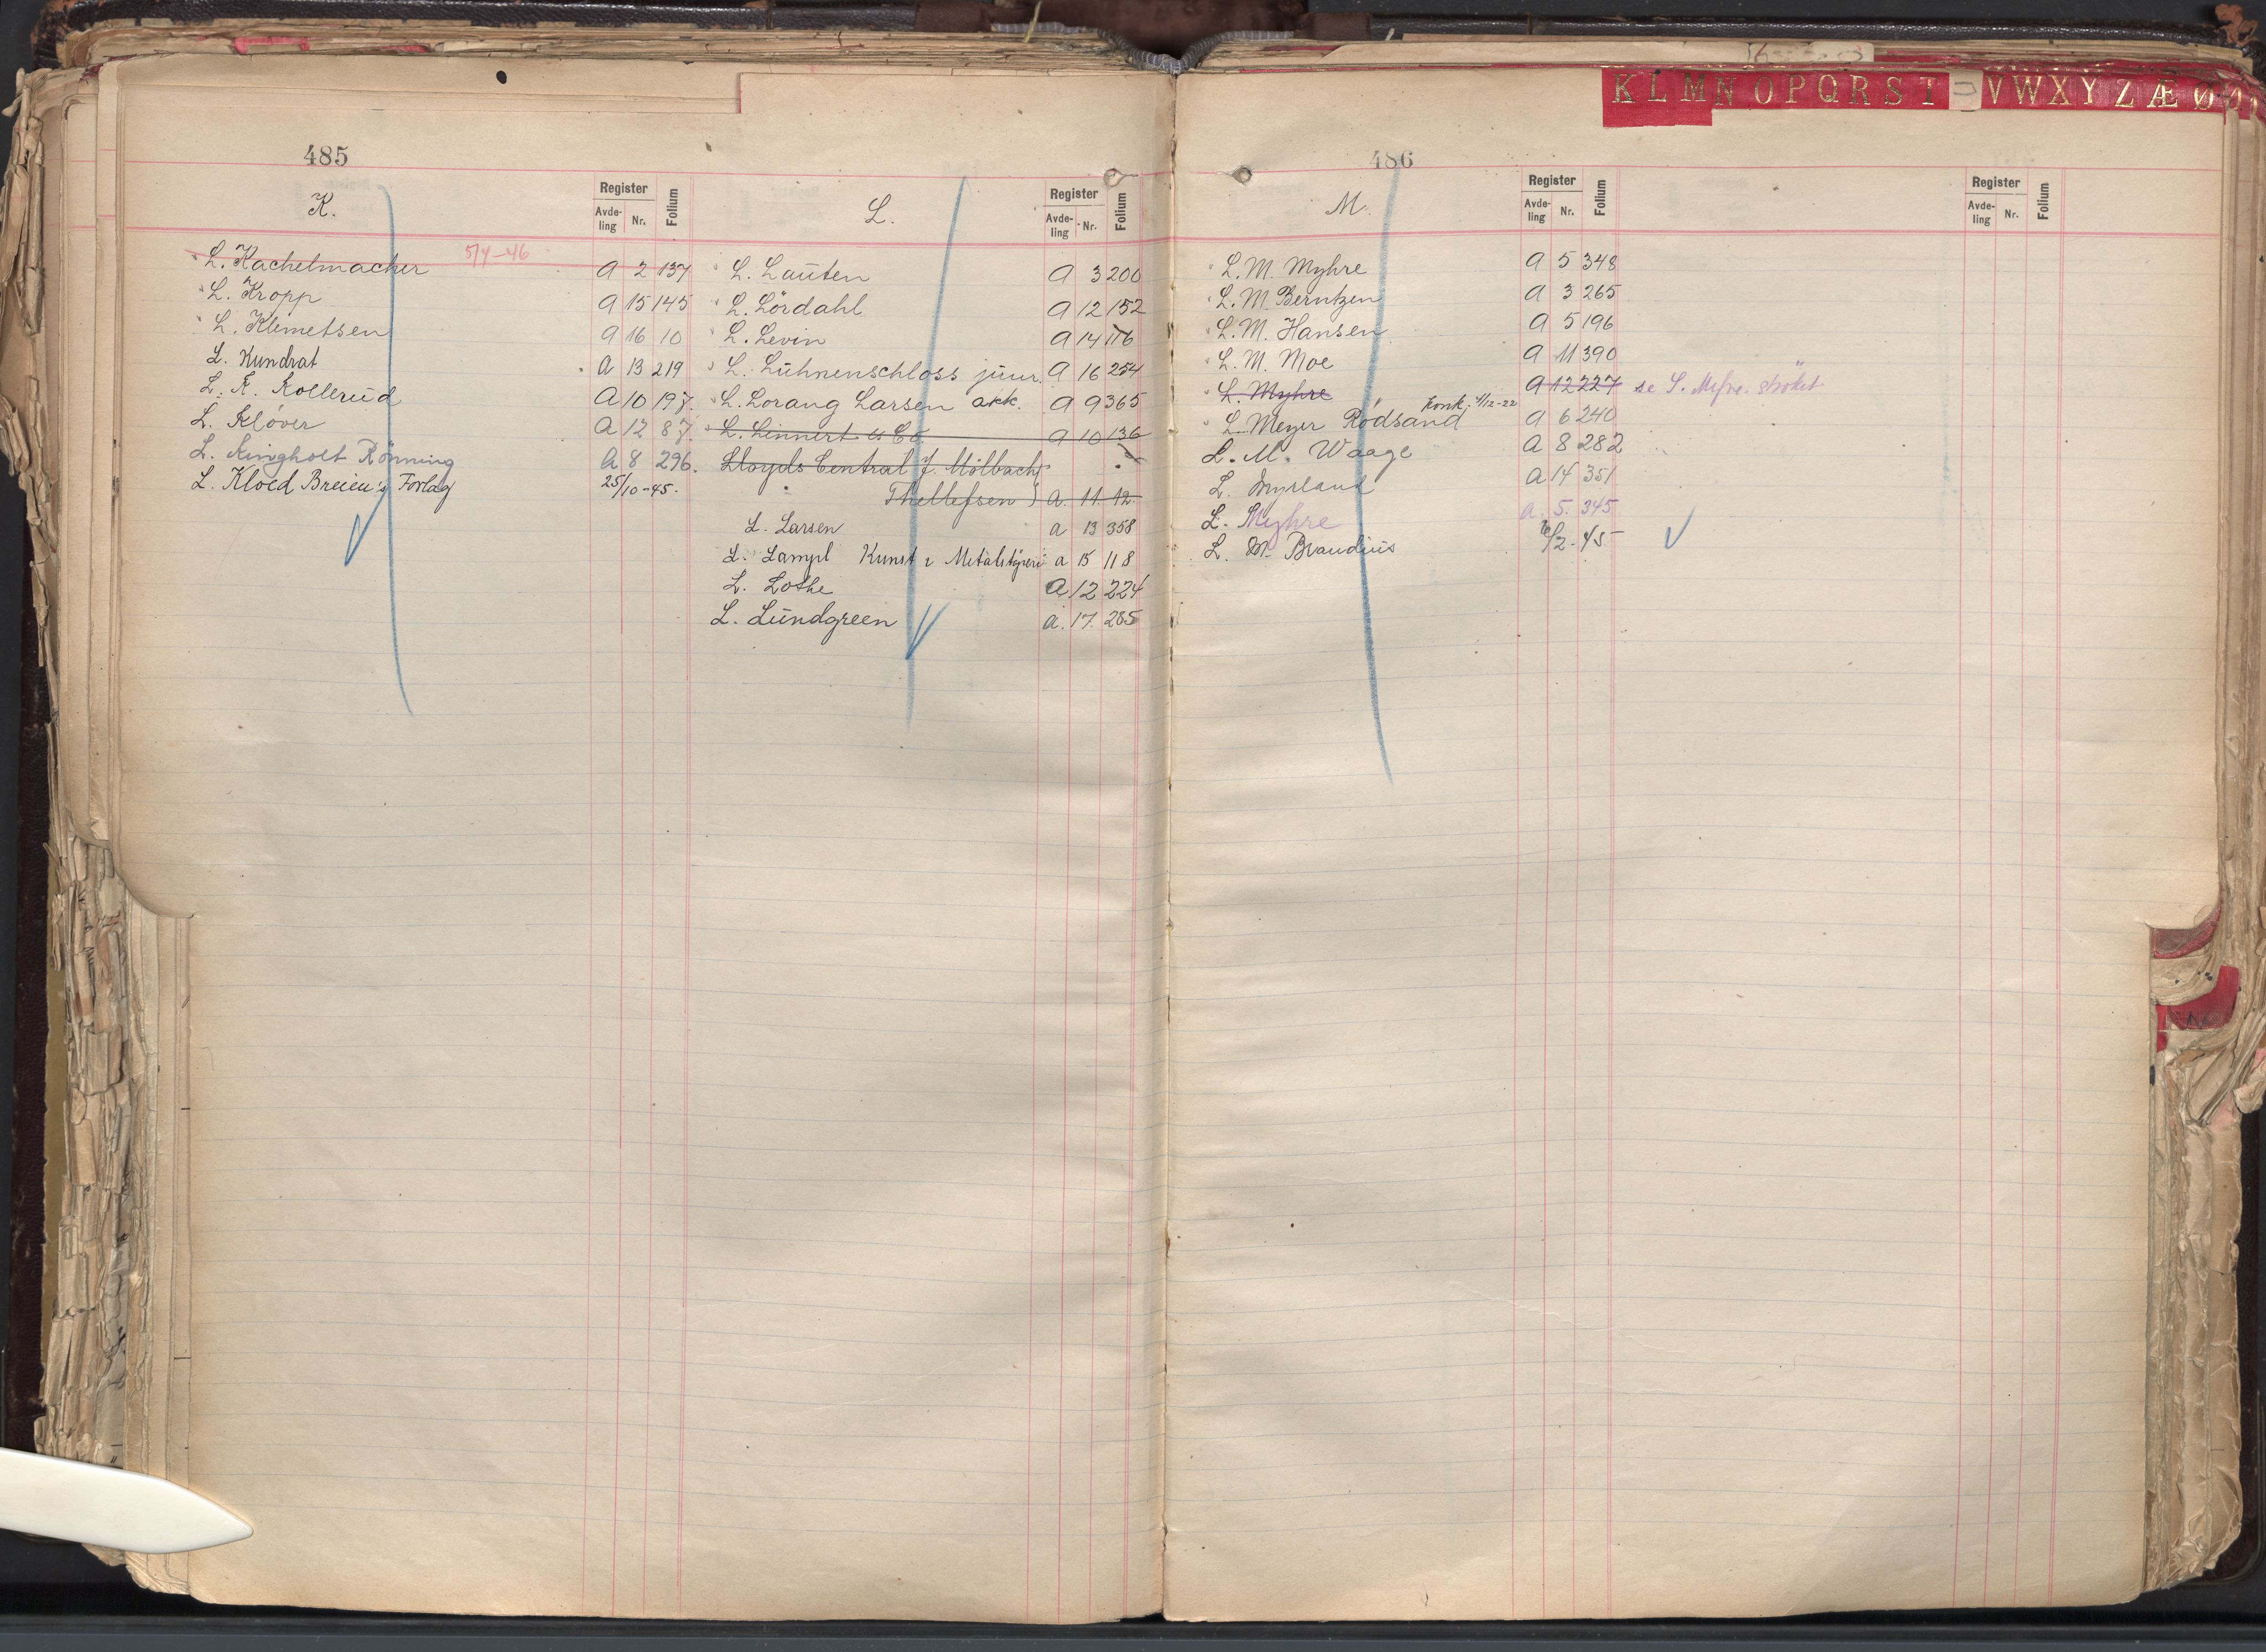 K L M N O P Q R S T U V W X Y Z Æ Ø
485
Register
Avde-
ling
Nr.
Folium
K.
L. Kachelmacher 5/4-46 A 2 137
L. Kropp A 15 145
L. Klemetsen A 16 10
L. Kundrat A 13 219
L. K. Kollerud A 10 197.
L. Kløver A 12 87.
L. Kingholt Rönning A 8 296.
L. Kloed Breien's Forlag 25/10-45.
Register
Avde-
ling
Nr.
Folium
L.
L. Lauten A 3 200
L. Lördahl A 12 152
L. Levin A 14 116
L. Lühnenschloss junr. A 16 254
L. Lorang Larsen A 9 365
L. Linnert & Co. A 10 136
Lloyds Central J. Mölbach
Thellefsen) A. 11. 12.
L. Larsen A 13 358
L. Lampl Kunst & Metalstøperi A 15 118
L. Lothe A 12 224
L. Lundgreen A. 17. 285
486
Register
Avde-
ling
Nr.
Folium
M.
L. M. Myhre A 5 348
L. M. Berntzen A 3 265
L. M. Hansen A 5 196
L. M. Moe A 11 390
L. Myhre A 12 227 se
L. Meyer Rödsand Konk. 4/12-22 A 6 240
L. M. Waage A 8 282
L. Myrland A 14 351
L. Myhre A. 5. 345
L. M. Brandius /2-45
Register
Avde-
ling
Nr.
Folium